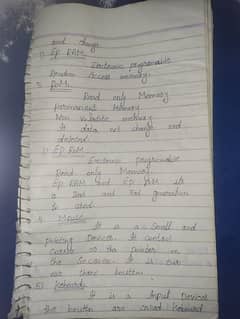 and they
1) EP RAM
Electronic programable
Random Access memory.
2) ROM.
Read only Memory
permanant Memory
Non Volatile memory
It data not change and
deleted
3) EP ROM
Electronic programable
Read only Memory
EP RAM and EP ROM its
a 2nd and 3rd generation
is used
4) Mouse
It is a small and
pointing Device. It control
the pointer on
the Screen. It is
button.
5) Keyboard
It is a Input Device
the button are called keyboard